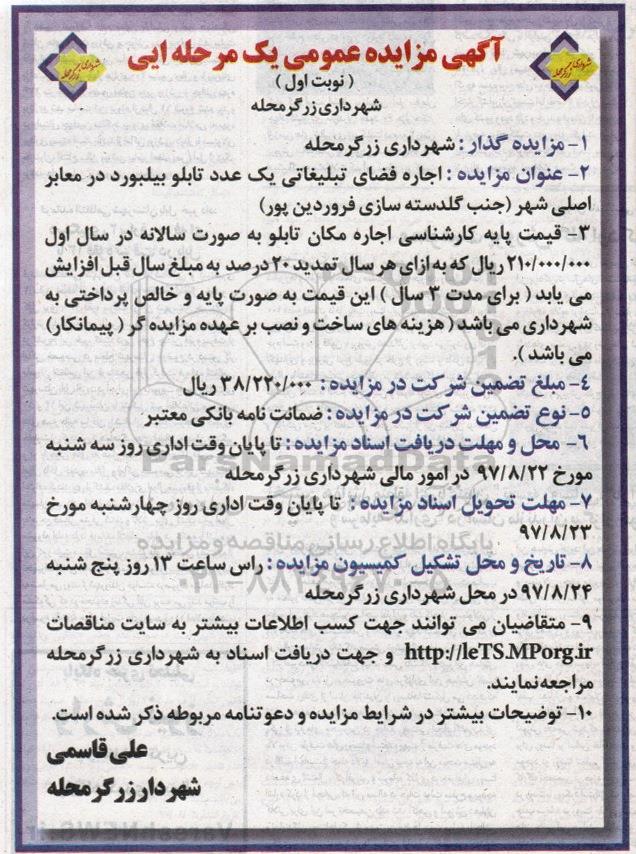 آگهی مزایده عمومی یک مرحله ایی
( نوبت اول )
شهرداری زرگرمحله
۱- مزایده گذار : شهرداری زرگرمحله
۲- عنوان مزایده : اجاره فضای تبلیغاتی یک عدد تابلو بیلبورد در معابر
اصلی شهر (جنب گلدسته سازی فروردین پور)
۳- قیمت پایه کارشناسی اجاره مکان تابلو به صورت سالانه در سال اول
۲۱۰/۰۰۰/۰۰۰ ریال که به ازای هر سال تمدید ۲۰ درصد به مبلغ سال قبل افزایش
می یابد ( برای مدت ۳ سال ) این قیمت به صورت پایه و خالص پرداختی به
شهرداری می باشد ( هزینه های ساخت و نصب بر عهده مزایده گر ( پیمانکار)
می باشد ).
۴- مبلغ تضمین شرکت در مزایده : ۳۸/۲۲۰/۰۰۰ ریال
۵- نوع تضمین شرکت در مزایده : ضمانت نامه بانکی معتبر
۶- محل و مهلت دریافت اسناد مزایده : تا پایان وقت اداری روز سه شنبه
مورخ ۹۷/۸/۲۲ در امور مالی شهرداری زرگرمحله
۷- مهلت تحویل اسناد مزایده : تا پایان وقت اداری روز چهارشنبه مورخ
۹۷/۸/۲۳
۸- تاریخ و محل تشکیل کمیسیون مزایده : راس ساعت ۱۳ روز پنج شنبه
۹۷/۸/۲۴ در محل شهرداری زرگرمحله
۹- متقاضیان می توانند جهت کسب اطلاعات بیشتر به سایت مناقصات
http://IeTS.MPorg.ir و جهت دریافت اسناد به شهرداری زرگرمحله
مراجعه نمایند.
۱۰- توضیحات بیشتر در شرایط مزایده و دعوتنامه مربوطه ذکر شده است.
علی قاسمی
شهردار زرگرمحله
ParsNamadData
پایگاه اطلاع رسانی مناقصه و مزایده